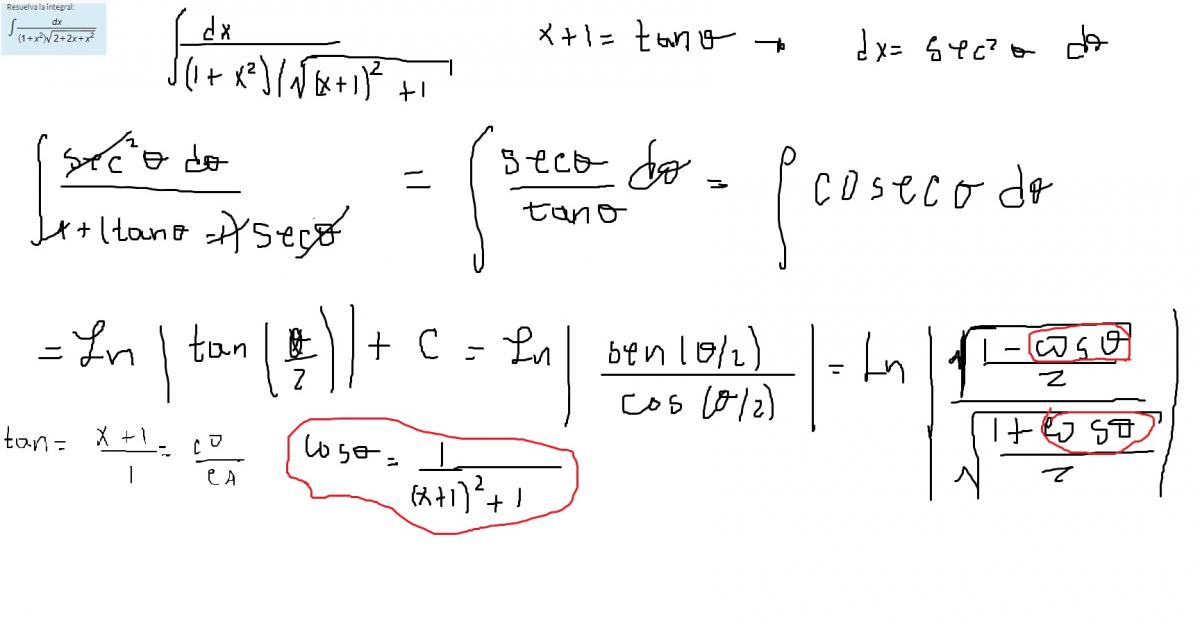 Resuelva la integral:
∫ dx / (1+x²)√2+2x+x²
∫ dx / (1+x²)(√(x+1)²+1    x+1 = tan θ →    dx = sec² θ dθ
∫ sec² θ dθ / x+1(tanθ =1) secθ = ∫ secθ / tanθ dθ = ∫ cosec θ dθ
= Ln |tan(θ/2)| + C = Ln |sen(θ/2) / cos(θ/2)| = Ln |√(1-cosθ / 2) / √(1+cosθ / 2)|
tan = x+1 / 1 = co / CA    Cosθ = 1 / (x+1)²+1